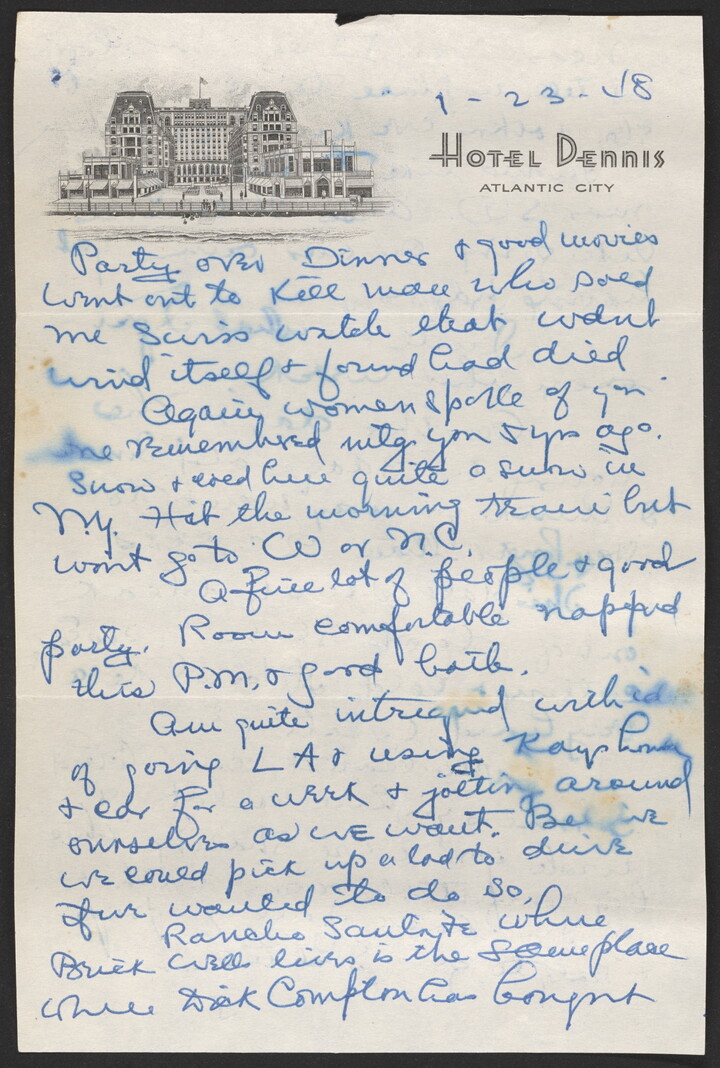 1-23-48
HOTEL DENNIS
ATLANTIC CITY
Party over Dinner & good movies
went out to kill man who soed
me Swiss watch that wdnt
wind itself & found had died
Again women spoke of you
one remembered mtg you 5 yrs ago.
Snow & here quite a snow in
N.Y. Hit the morning train but
wont go to CW or N.C.
A fine lot of people & good
party. Room comfortable napped
this P.M. & good bath.
Am quite intrigued with id
of going LA & using Kays home
& car for a week & jolting around
ourselves as we want. Believe
we could pick up a lad to drive
if we wanted to do so.
Rancho Santa Fe where
Brick Wells lives is the same place
where Dick Compton has bought